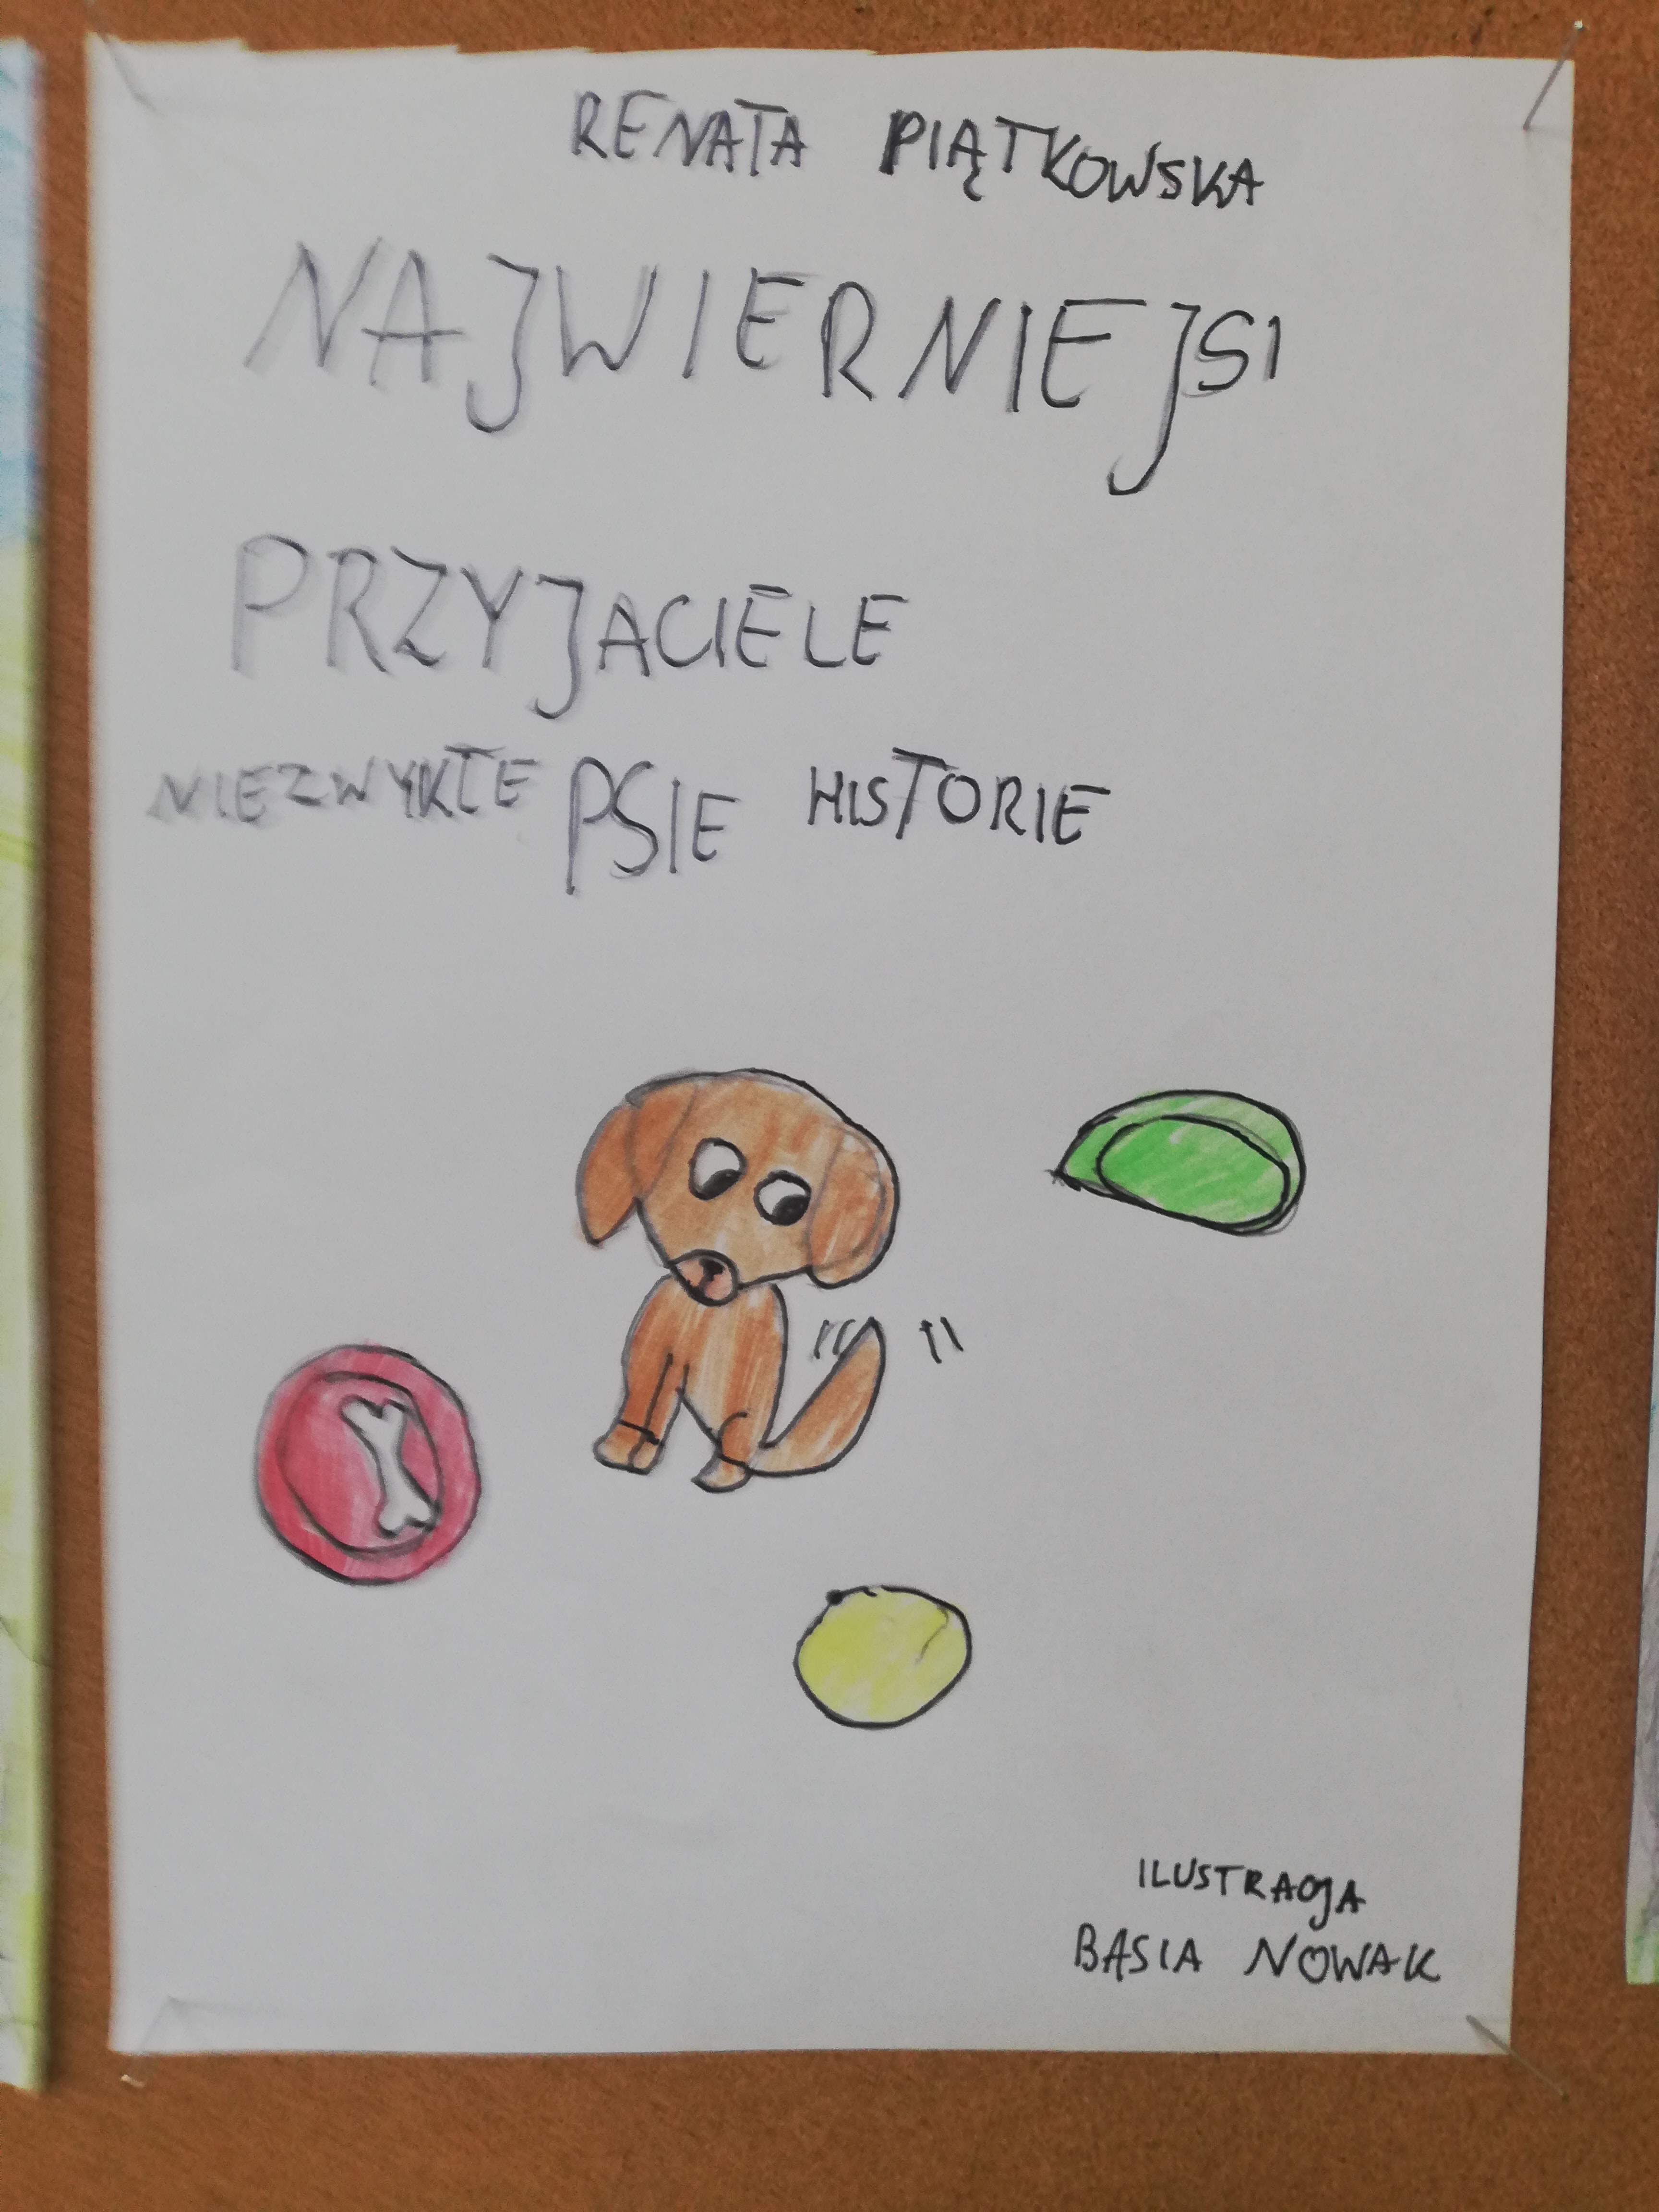 RENATA PIĄTKOWSKA
NAJWIERNIEJSI
PRZYJACIELE
NIEZWYKŁE PSIE HISTORIE
ILUSTRACJA
BASIA NOWAK